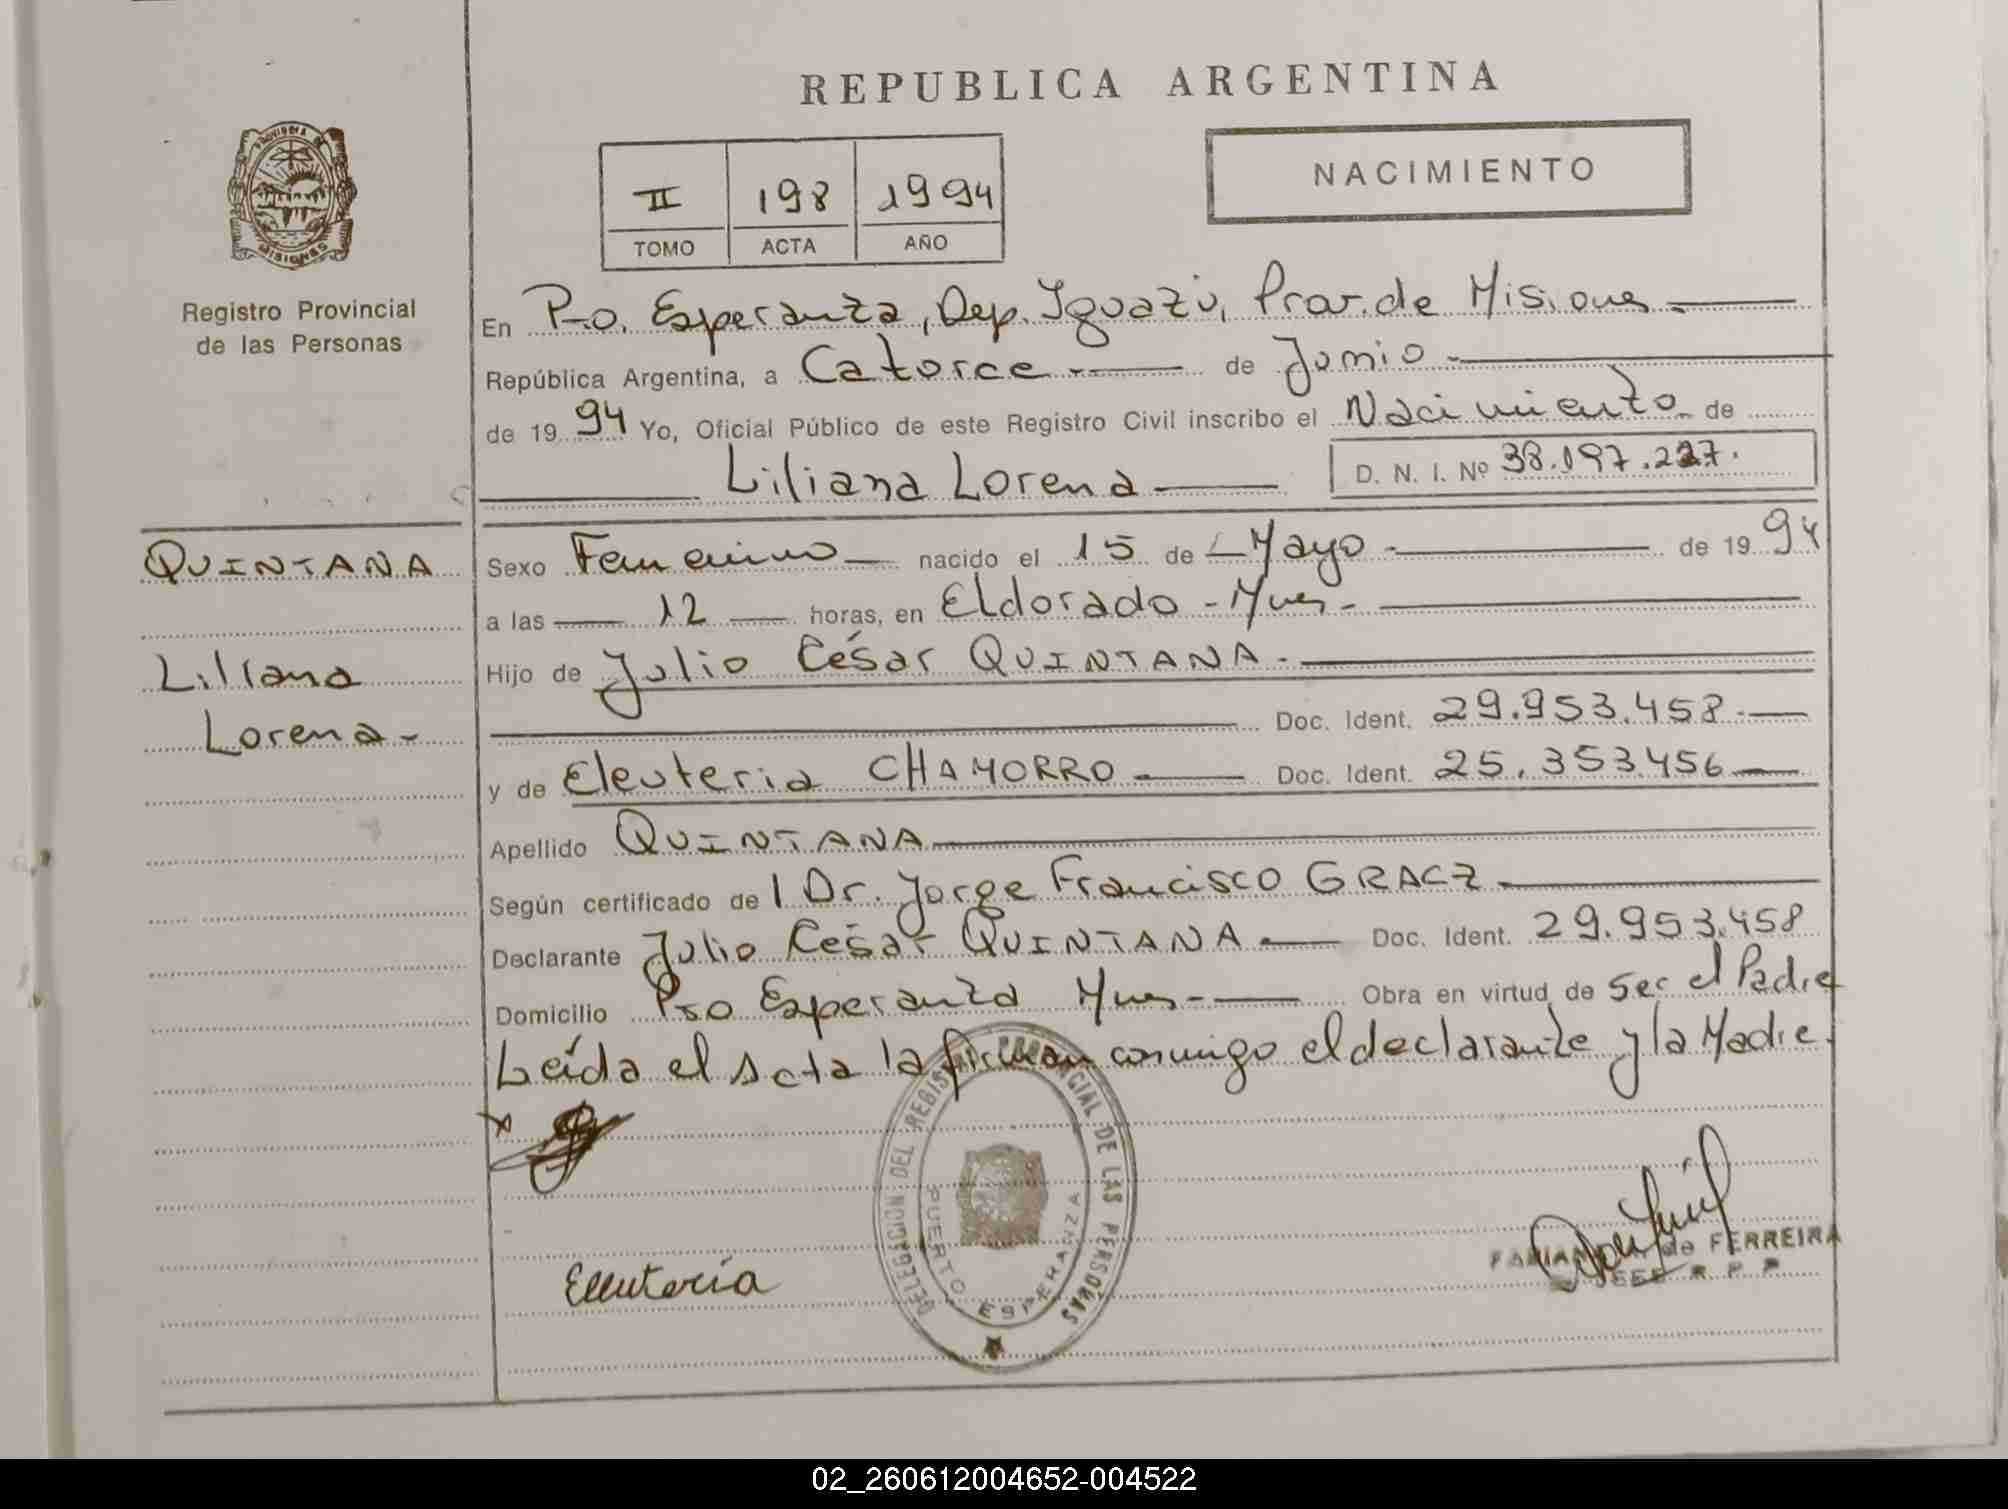 REPUBLICA ARGENTINA
PROVINCIA DE
MISIONES
Registro Provincial
de las Personas
NACIMIENTO
II 198 1994
TOMO ACTA AÑO
En Pto. Esperanza, Dep. Iguazú, Prov. de Misiones
República Argentina, a Catorce de Junio
de 1994 Yo, Oficial Público de este Registro Civil inscribo el Nacimiento de
Liliana Lorena D. N. I. Nº 38.197.227.
QUINTANA
Liliana
Lorena
Sexo Femenino nacido el 15 de Mayo de 1994
a las 12 horas, en Eldorado - Mnes -
Hijo de Julio César QUINTANA.
Doc. Ident. 29.953.458
y de Eleuteria CHAMORRO Doc. Ident. 25.353.456
Apellido QUINTANA
Según certificado del Dr. Jorge Francisco GRACZ
Declarante Julio César QUINTANA Doc. Ident. 29.953.458
Domicilio Pto Esperanza Mnes - Obra en virtud de ser el Padre
Leída el acta la firman conmigo el declarante y la Madre.
DELEGACION DEL REGISTRO PROVINCIAL DE LAS PERSONAS
PUERTO ESPERANZA
Eleuteria
de FERREIRA
JEFE R. P. P.
02_260612004652-004522